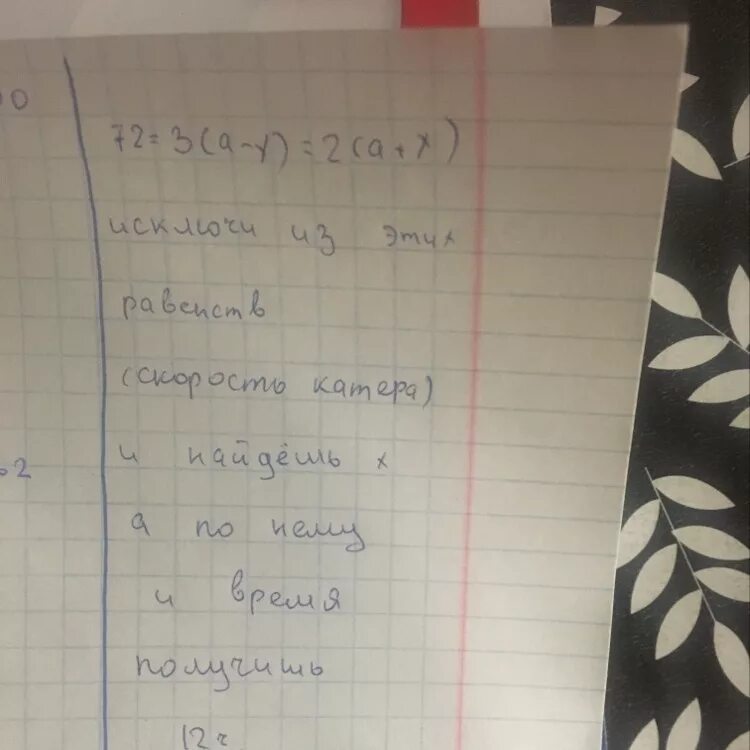 0
72=3(a-y)=2(a+x)
исключи из этих
равенств
(скорость катера)
и найдёшь x
2
а по нему
и время
получишь
12ч